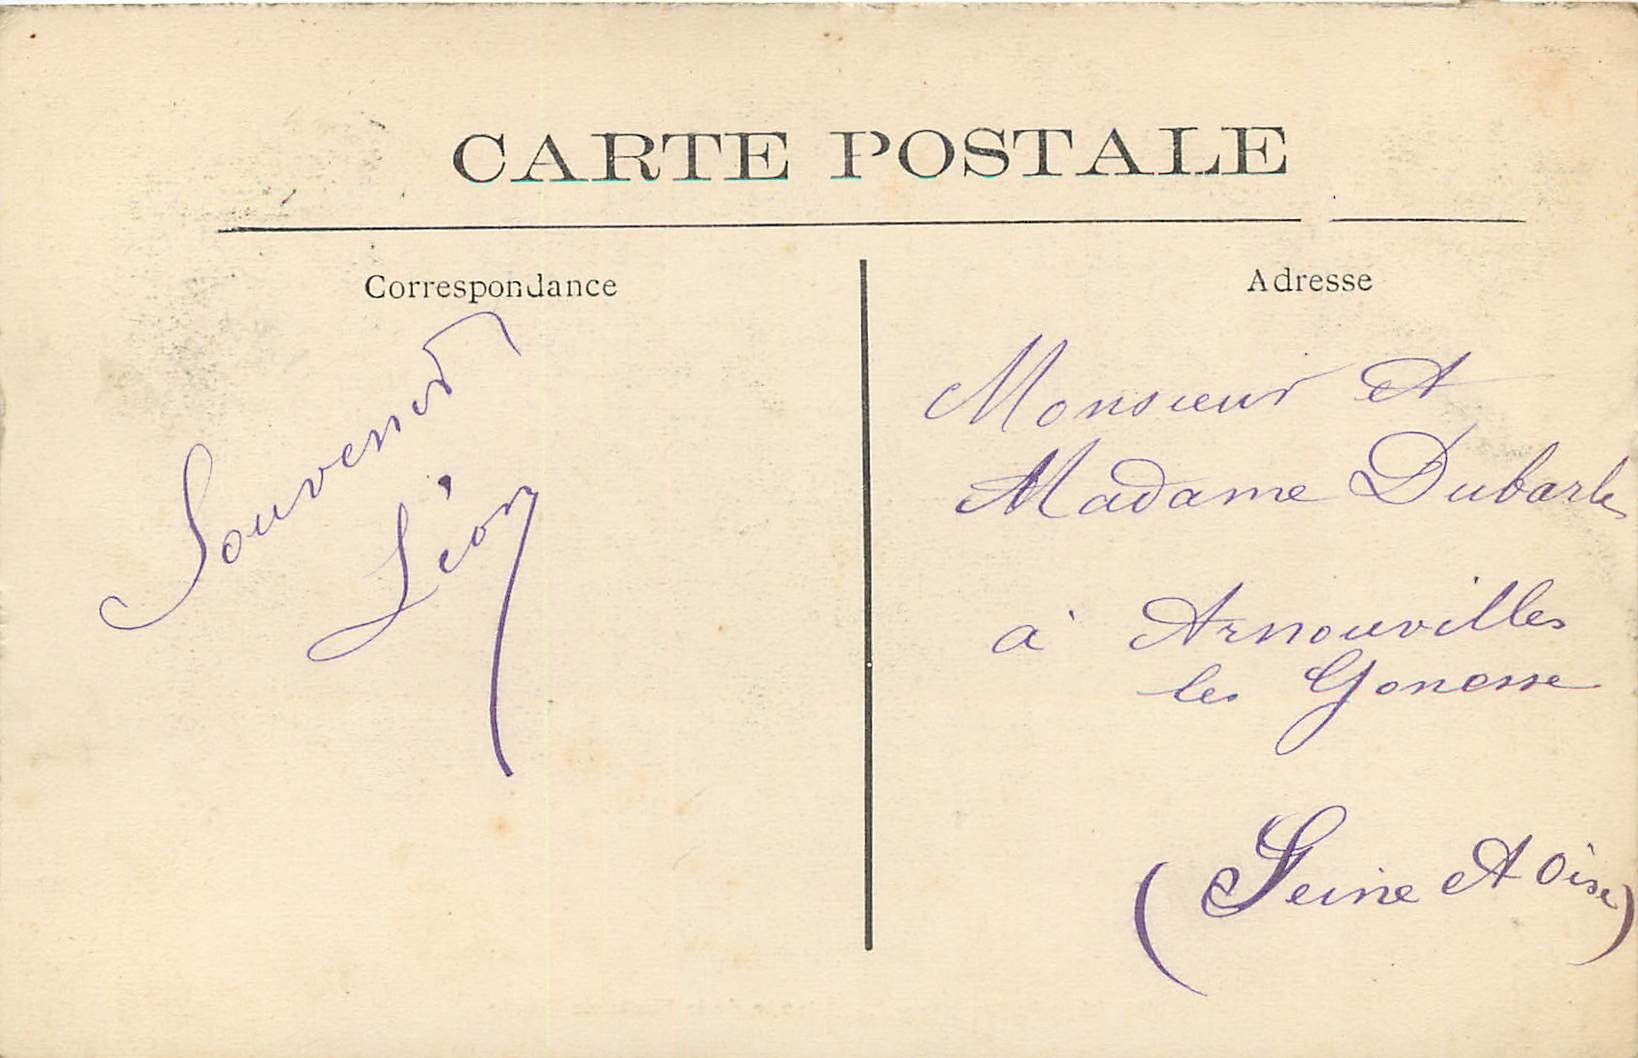 CARTE POSTALE
Correspondance
Souvenir
Léon
Adresse
Monsieur et
Madame Dubarle
à Arnouvilles
les Gonesse
(Seine et Oise)